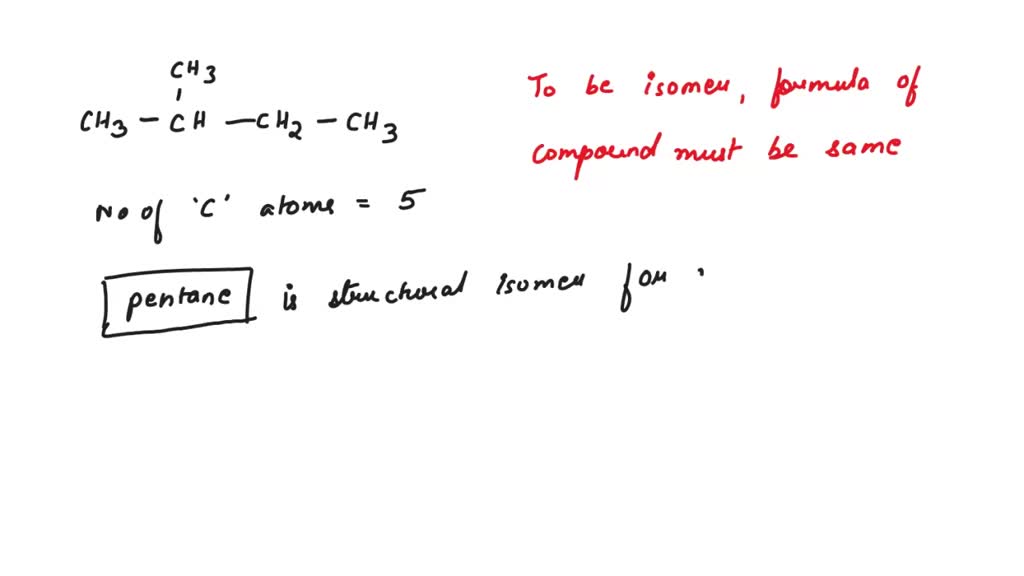 CH3
CH3 - CH - CH2 - CH3
To be isomer, formula of
compound must be same
No of 'C' atoms = 5
pentane is structural isomer for